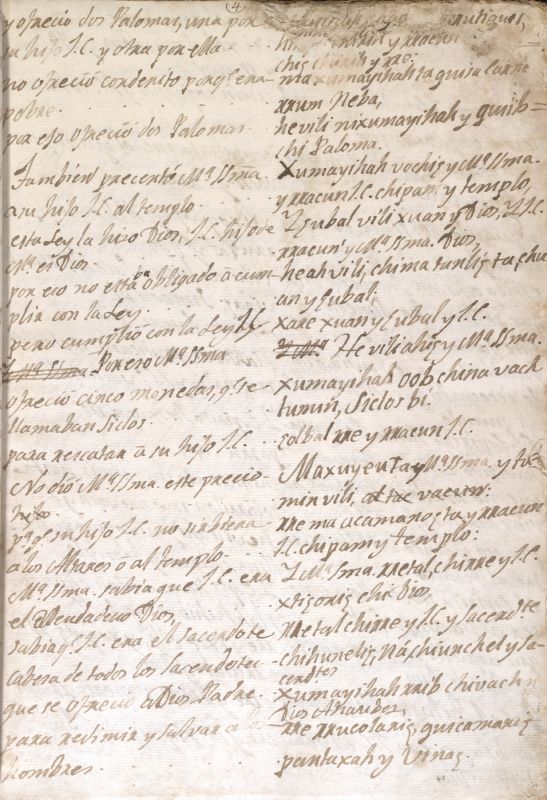 (4)
y ofrecio dos Palomas, una por
su hijo J.C. y otra por ella
no ofreció corderito porq.e era
pobre.
por eso ofreció dos Palomas.
Tambien precentó M.a SSma
a su hijo J.C. al templo.
esta Ley la hizo Dios, J.C. hijo de
M.a es Dios
por eso no estaba obligado a cum-
plir con la Ley.
pero cumplió con la Ley J.C.
Por eso M.a SSma
ofrecio cinco monedas, q.e se
llamaban Siclos
para rescatar a su hijo J.C.
No dió M.a SSma. este precio
hijo
p.a q.e su hijo J.C. no sirbiera
a los Altares o al templo.
M.a SSma. sabia que J.C. era
el Verdadero Dios,
sabia q.e J.C. era el sacerdote
cabesa de todos los sacerdotes
que se ofreció a Dios Padre.
para redimir y salvar a los
hombres.
antiguos,
chi
nta xumayihah ta quisa carne
rrum Neba,
he vili nixumayihah y quiib=
chi Paloma.
Xumayihah vochis y M.a SSma.
y rracun J.C. chipan y templo,
Dios, Y J.C.
rracun y M.a SSma. Dios,
heah vili, chima tanlis ta chu
an y Cubal;
xare xuan y Cubal y J.C.
He vili ahis y M.a SSma.
xumayihah oob china vach
tumin, Siclos bi.
colbal rre y rracun J.C.
Maxuyenta y M.a SSma. y
min vili, vacun:
rre ma acamanos ta y rracun
J.C. chipam y templo:
Y M.a SSma. rretal, chirre y J.C.
xticonis chi Dios,
rretal chirre y J.C. y sacerdote
chihunelis, Náchiunchel y sa-
cerdotes
xumayihah rrib chivach
Dios Ahaubes,
rre rrucolaris, quicamaris
pantaxah y Vinas.